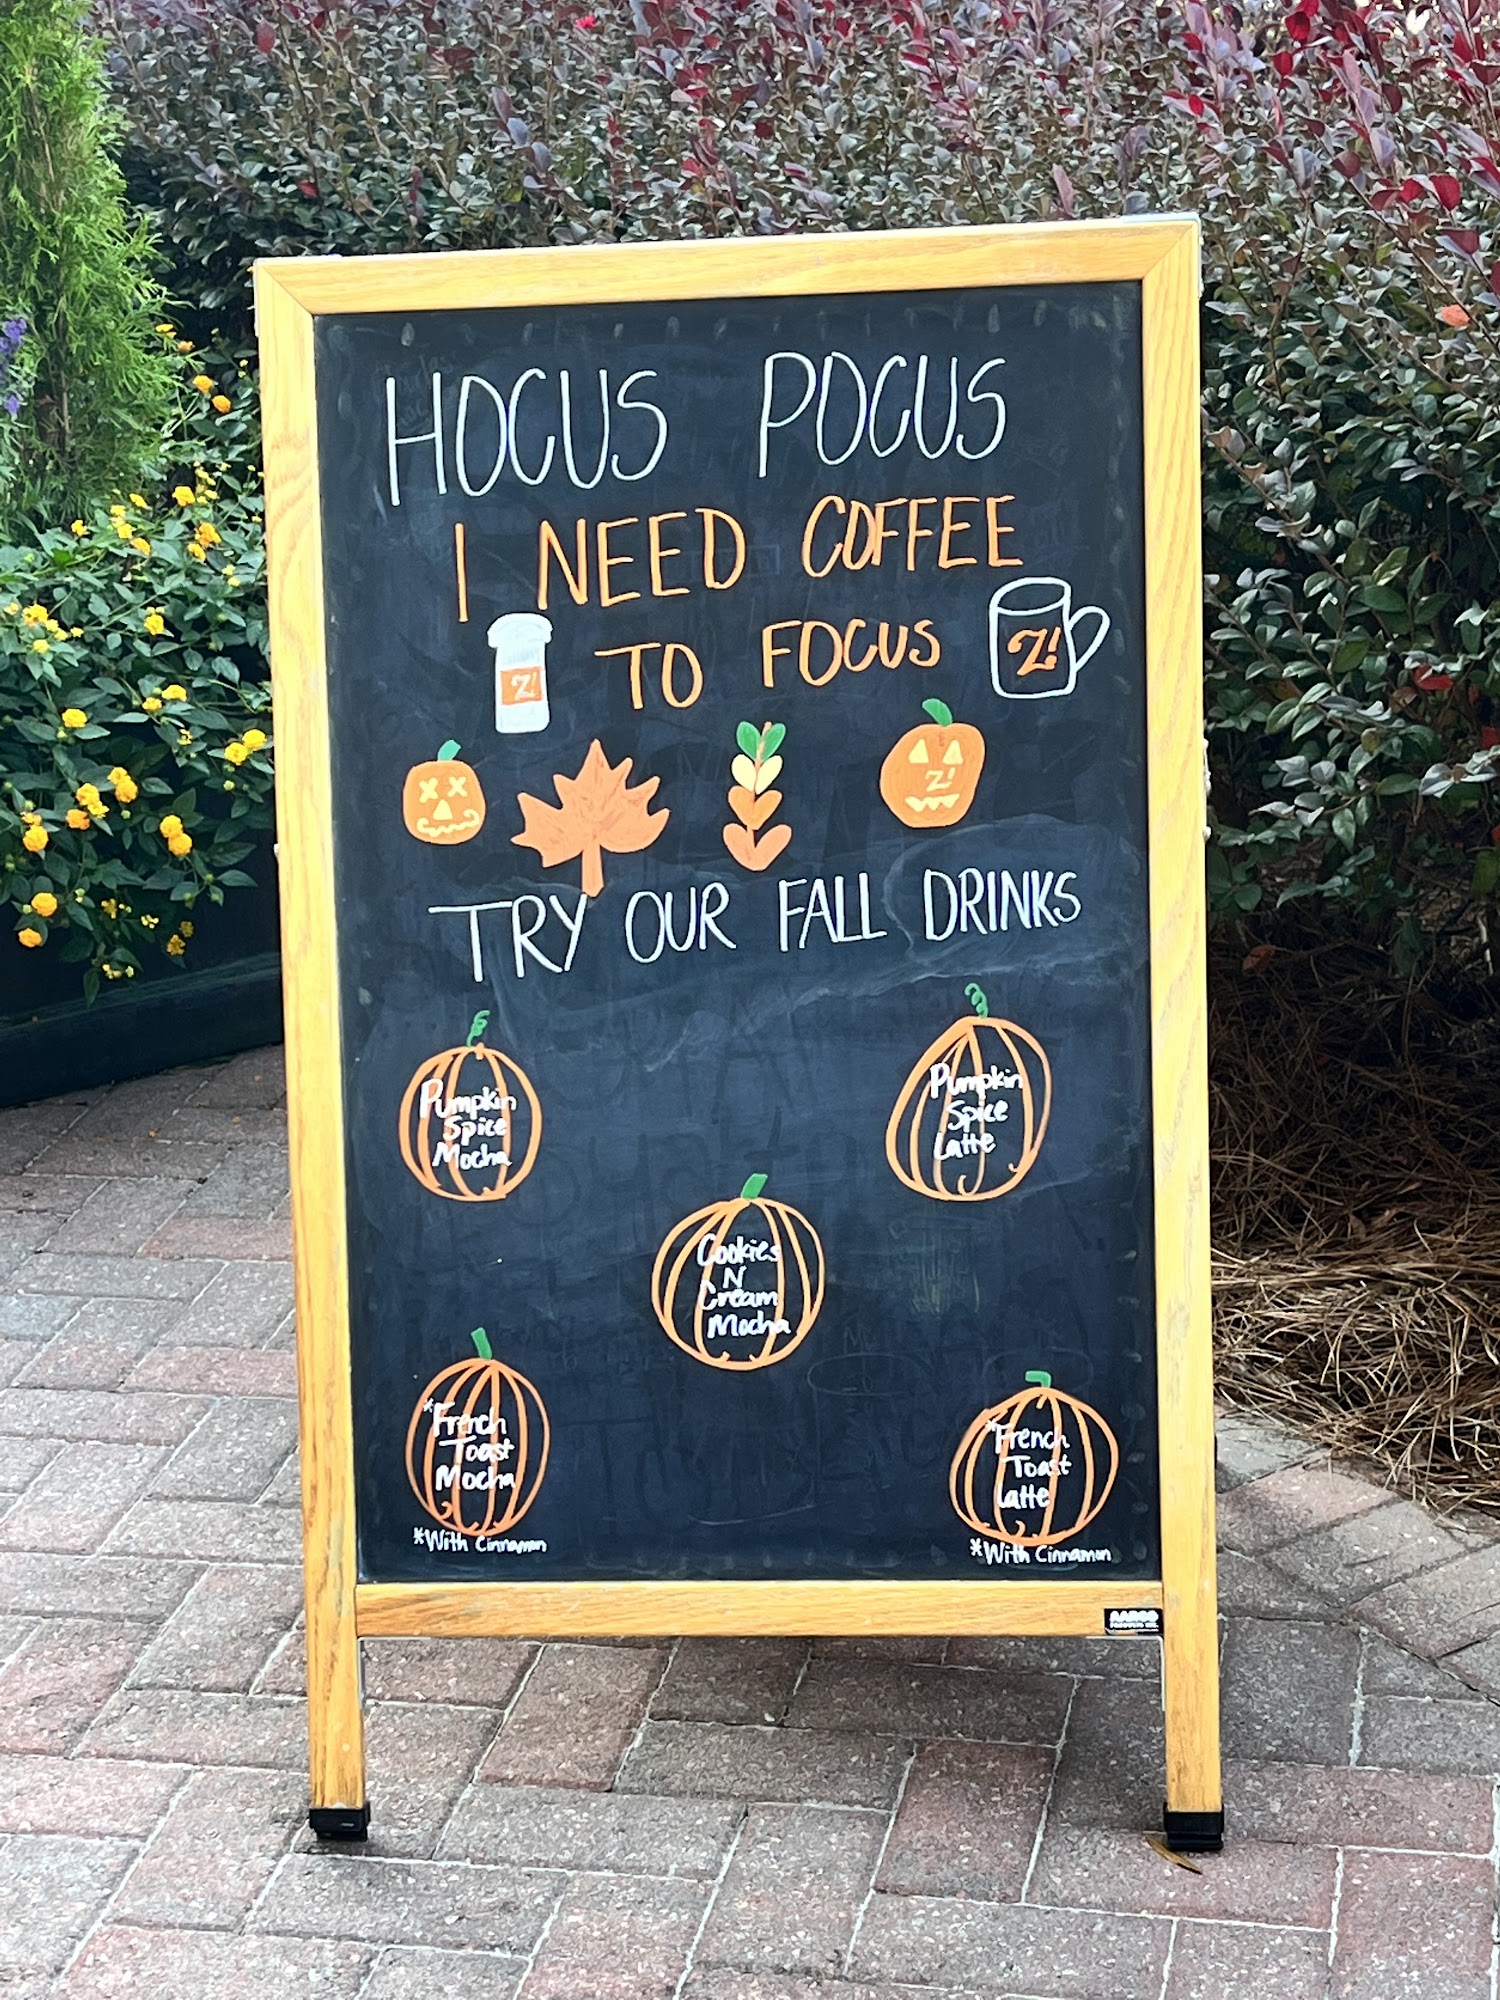 HOCUS POCUS
I NEED COFFEE
TO FOCUS
Z!
Z!
Z!
TRY OUR FALL DRINKS
Pumpkin
Spice
Mocha
Pumpkin
Spice
Latte
Cookies
N
Cream
Mocha
*French
Toast
Mocha
*With Cinnamon
*French
Toast
Latte
*With Cinnamon
AARCO
PRODUCTS INC.